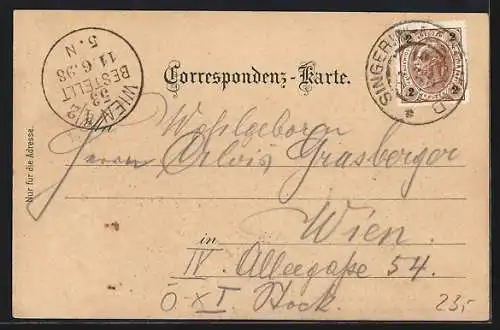 WIEN 4/1
53
BESTELLT
11.6.98
5. N
Correspondenz-Karte.
SINGERIN
2 2
2 2
Nur für die Adresse.
Wohlgeboren
Herrn Alois Grasberger
Wien.
in
IV. Alleegasse 54.
I Stock.
23,-